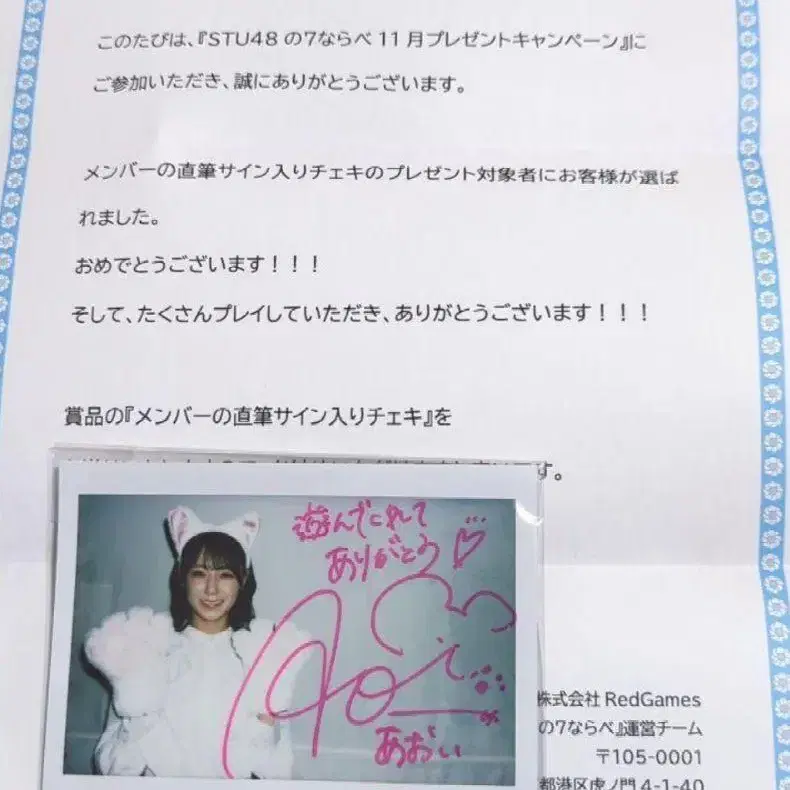 このたびは、『STU48の7ならべ11月プレゼントキャンペーン』に
ご参加いただき、誠にありがとうございます。
メンバーの直筆サイン入りチェキのプレゼント対象者にお客様が選ば
れました。
おめでとうございます！！！
そして、たくさんプレイしていただき、ありがとうございます！！！
賞品の『メンバーの直筆サイン入りチェキ』を
す。
遊んでくれて
ありがとう♡
Aoi
あおい
株式会社RedGames
の7ならべ』運営チーム
〒105-0001
都港区虎ノ門4-1-40